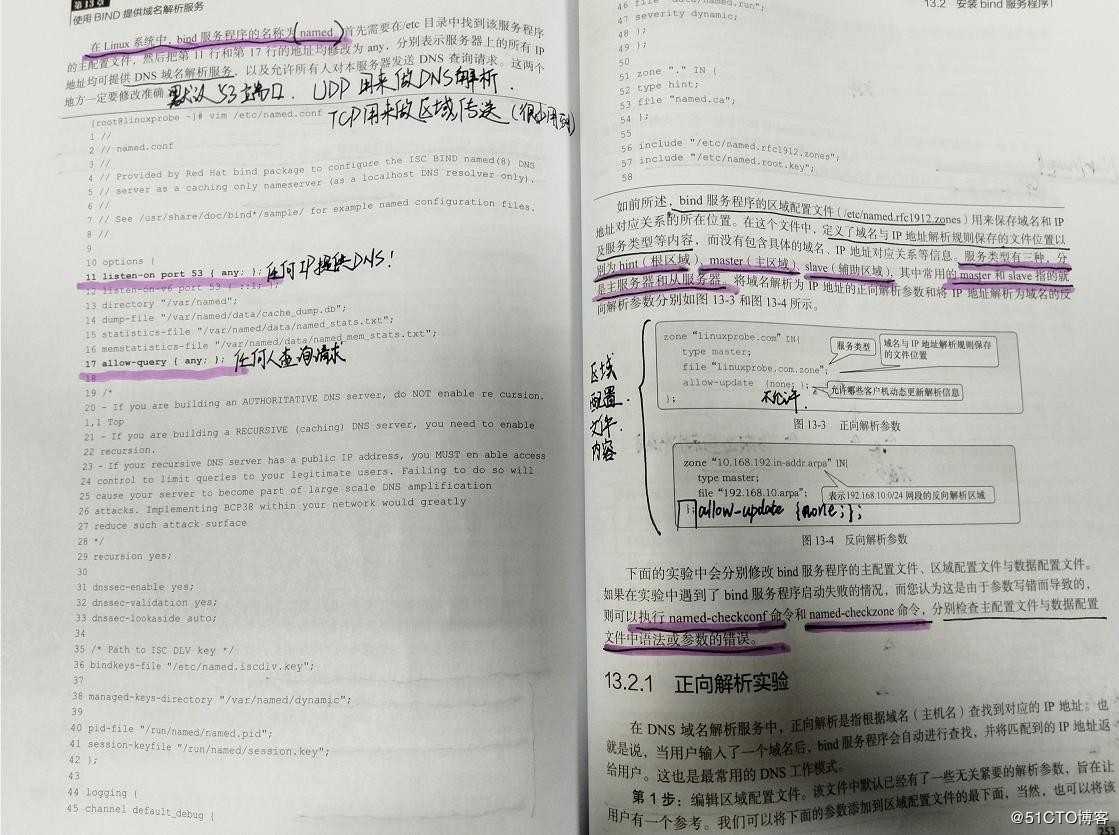 第13章
使用 BIND 提供域名解析服务
在 Linux 系统中，bind 服务程序的名称为 named。首先需要在/etc 目录中找到该服务程序
的主配置文件，然后把第 11 行和第 17 行的地址均修改为 any，分别表示服务器上的所有 IP
地址均可提供 DNS 域名解析服务，以及允许所有人对本服务器发送 DNS 查询请求。这两个
地方一定要修改准确。
默认 53 端口．UDP 用来做DNS解析．
TCP用来做区域传送（很少用到）
[root@linuxprobe ~]# vim /etc/named.conf
1 //
2 // named.conf
3 //
4 // Provided by Red Hat bind package to configure the ISC BIND named(8) DNS
5 // server as a caching only nameserver (as a localhost DNS resolver only).
6 //
7 // See /usr/share/doc/bind*/sample/ for example named configuration files.
8 //
9
10 options {
11 listen-on port 53 { any; };
任何IP提供DNS！
12 listen-on-v6 port 53 { ::1; };
13 directory "/var/named";
14 dump-file "/var/named/data/cache_dump.db";
15 statistics-file "/var/named/data/named_stats.txt";
16 memstatistics-file "/var/named/data/named_mem_stats.txt";
17 allow-query { any; };
任何人查询请求
18
19 /*
20 - If you are building an AUTHORITATIVE DNS server, do NOT enable re cursion.
1,1 Top
21 - If you are building a RECURSIVE (caching) DNS server, you need to enable
22 recursion.
23 - If your recursive DNS server has a public IP address, you MUST en able access
24 control to limit queries to your legitimate users. Failing to do so will
25 cause your server to become part of large scale DNS amplification
26 attacks. Implementing BCP38 within your network would greatly
27 reduce such attack surface
28 */
29 recursion yes;
30
31 dnssec-enable yes;
32 dnssec-validation yes;
33 dnssec-lookaside auto;
34
35 /* Path to ISC DLV key */
36 bindkeys-file "/etc/named.iscdlv.key";
37
38 managed-keys-directory "/var/named/dynamic";
39
40 pid-file "/run/named/named.pid";
41 session-keyfile "/run/named/session.key";
42 };
43
44 logging {
45 channel default_debug {
13.2 安装 bind 服务程序
46 file "data/named.run";
47 severity dynamic;
48 };
49 };
50
51 zone "." IN {
52 type hint;
53 file "named.ca";
54 };
55
56 include "/etc/named.rfc1912.zones";
57 include "/etc/named.root.key";
58
如前所述，bind 服务程序的区域配置文件（/etc/named.rfc1912.zones）用来保存域名和 IP
地址对应关系的所在位置。在这个文件中，定义了域名与 IP 地址解析规则保存的文件位置以
及服务类型等内容，而没有包含具体的域名、IP 地址对应关系等信息。服务类型有三种，分
别为 hint（根区域）、master（主区域）、slave（辅助区域），其中常用的 master 和 slave 指的就
是主服务器和从服务器。将域名解析为 IP 地址的正向解析参数和将 IP 地址解析为域名的反
向解析参数分别如图 13-3 和图 13-4 所示。
区域
配置．
文件．
内容
zone “linuxprobe.com” IN{
type master;
服务类型
域名与 IP 地址解析规则保存
的文件位置
file “linuxprobe.com.zone”;
allow-update {none; };
允许哪些客户机动态更新解析信息
};
不允许．
图 13-3 正向解析参数
zone “10.168.192.in-addr.arpa” IN{
type master;
file “192.168.10.arpa”;
表示192.168.10.0/24 网段的反向解析区域
}; allow-update {none;};
图 13-4 反向解析参数
下面的实验中会分别修改 bind 服务程序的主配置文件、区域配置文件与数据配置文件。
如果在实验中遇到了 bind 服务程序启动失败的情况，而您认为这是由于参数写错而导致的，
则可以执行 named-checkconf 命令和 named-checkzone 命令，分别检查主配置文件与数据配置
文件中语法或参数的错误。
13.2.1 正向解析实验
在 DNS 域名解析服务中，正向解析是指根据域名（主机名）查找到对应的 IP 地址；也
就是说，当用户输入了一个域名后，bind 服务程序会自动进行查找，并将匹配到的 IP 地址返
给用户。这也是最常用的 DNS 工作模式。
第 1 步：编辑区域配置文件。该文件中默认已经有了一些无关紧要的解析参数，旨在让
用户有一个参考。我们可以将下面的参数添加到区域配置文件的最下面，当然，也可以将该
@51CTO博客